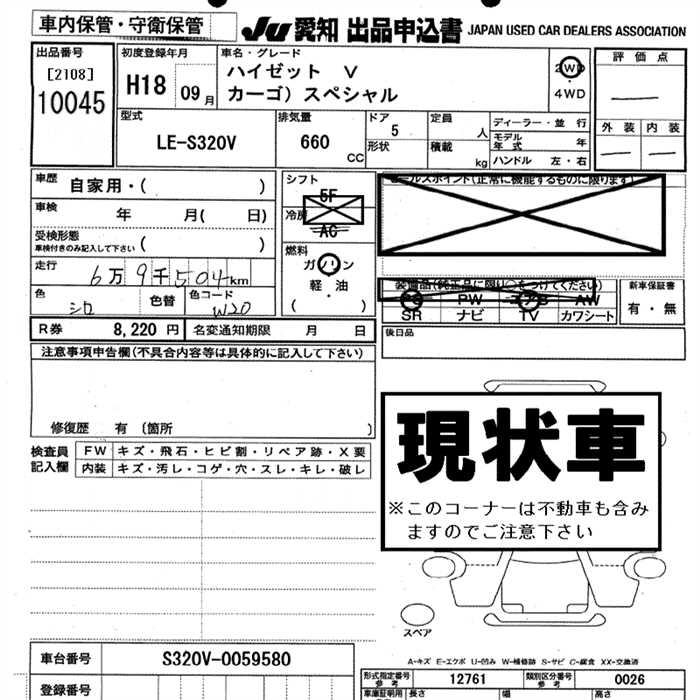 車内保管・守衛保管
JU 愛知 出品申込書 JAPAN USED CAR DEALERS ASSOCIATION
出品番号
[2108]
10045
初度登録年月
H18 09月
車名・グレード
ハイゼット V
カーゴ) スペシャル
2WD
・
4WD
評価点
外装 内装
型式
LE-S320V
排気量
660
CC
ドア
5
形状
定員
人
積載
kg
ディーラー・並行
モデル年式 年
ハンドル 左・右
車歴 自家用・( )
車検 年 月( 日)
受検形態
車検付きのみ記入して下さい ( )
走行 6万9千504km
色 シロ 色替 色コード W20
シフト
5F
冷房
AC
燃料
ガソリン
軽・油
( )
セールスポイント(正常に機能するものに限ります)
装備品(純正品に限り○をつけてください)
PS PW エアB AW
SR ナビ TV カワシート
新車保証書
有・無
後日品
R券 8,220円 名変通知期限 月 日
注意事項申告欄(不具合内容等は具体的に記入して下さい)
修復歴 有 (箇所 )
検査員
記入欄
FW キズ・飛石・ヒビ割・リペア跡・X要
内装 キズ・汚レ・コゲ・穴・スレ・キレ・破レ
現状車
※このコーナーは不動車も含み
ますのでご注意下さい
スペア
A-キズ E-エクボ U-凹み W-補修跡 S-サビ C-腐食 XX-交換済
車台番号 S320V-0059580
登録番号
形式指定番号
参考
12761
類別区分番号
参考
0026
車庫証明用
長さ 幅 高さ